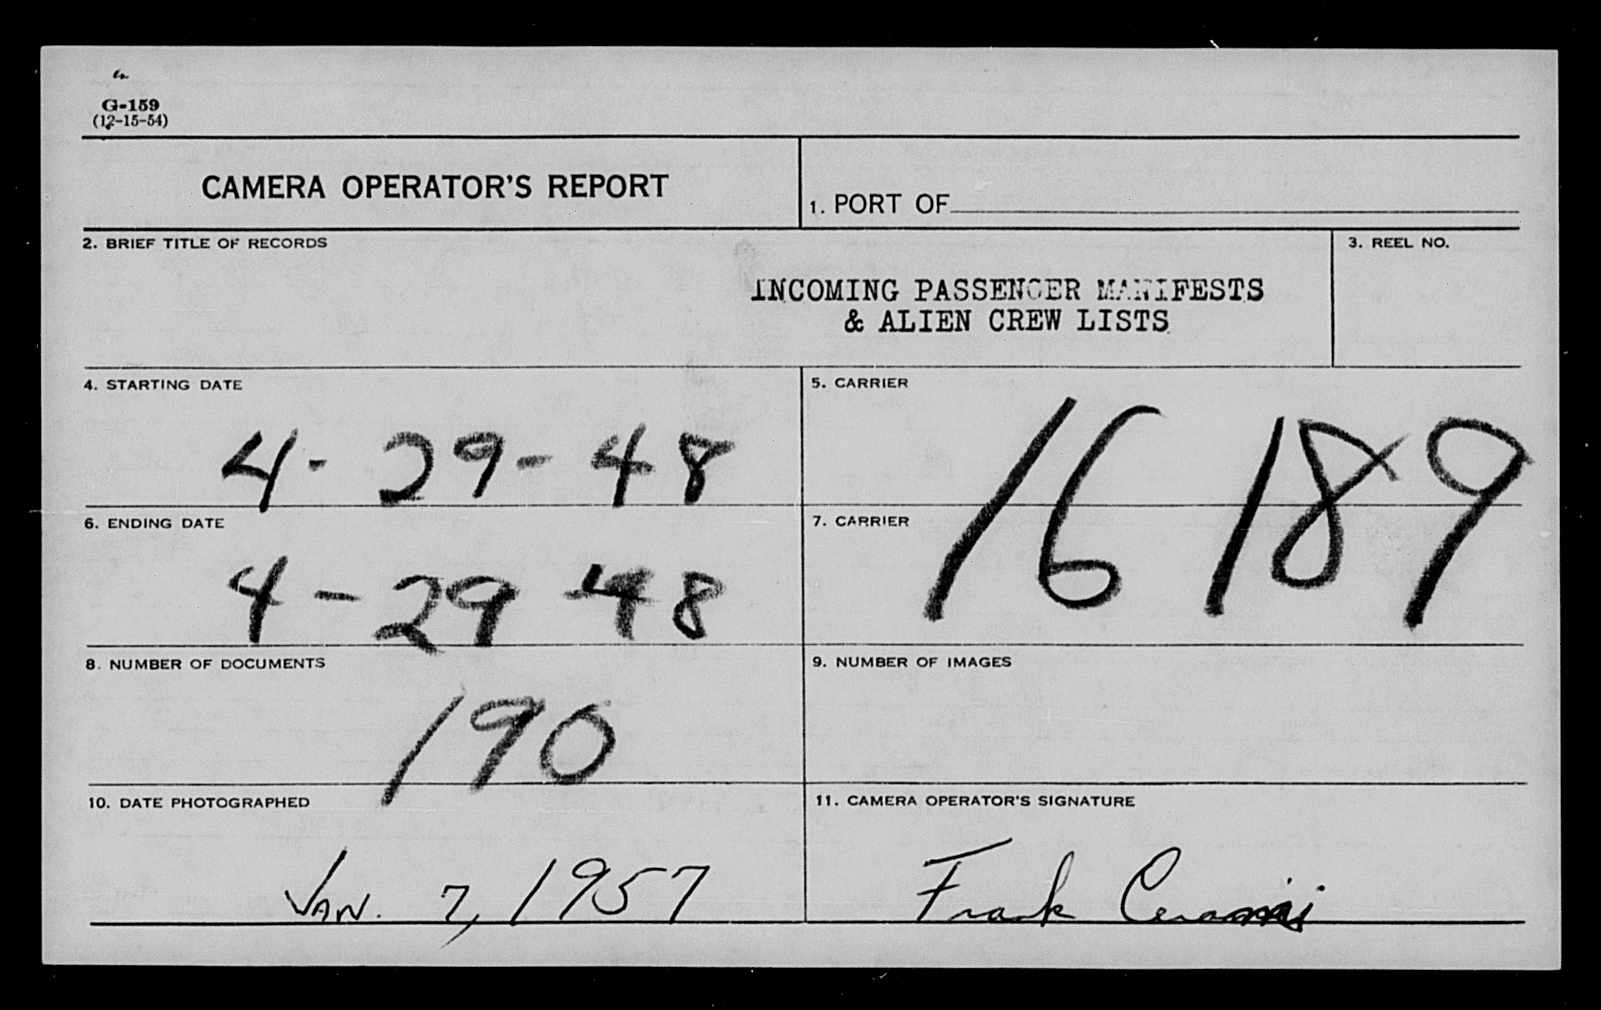 G-159
(12-15-54)
CAMERA OPERATOR'S REPORT
1. PORT OF
2. BRIEF TITLE OF RECORDS
INCOMING PASSENGER MANIFESTS
& ALIEN CREW LISTS
3. REEL NO.
4. STARTING DATE
4-29-48
5. CARRIER
16189
6. ENDING DATE
4-29-48
7. CARRIER
8. NUMBER OF DOCUMENTS
190
9. NUMBER OF IMAGES
10. DATE PHOTOGRAPHED
JAN. 7, 1957
11. CAMERA OPERATOR'S SIGNATURE
Frank